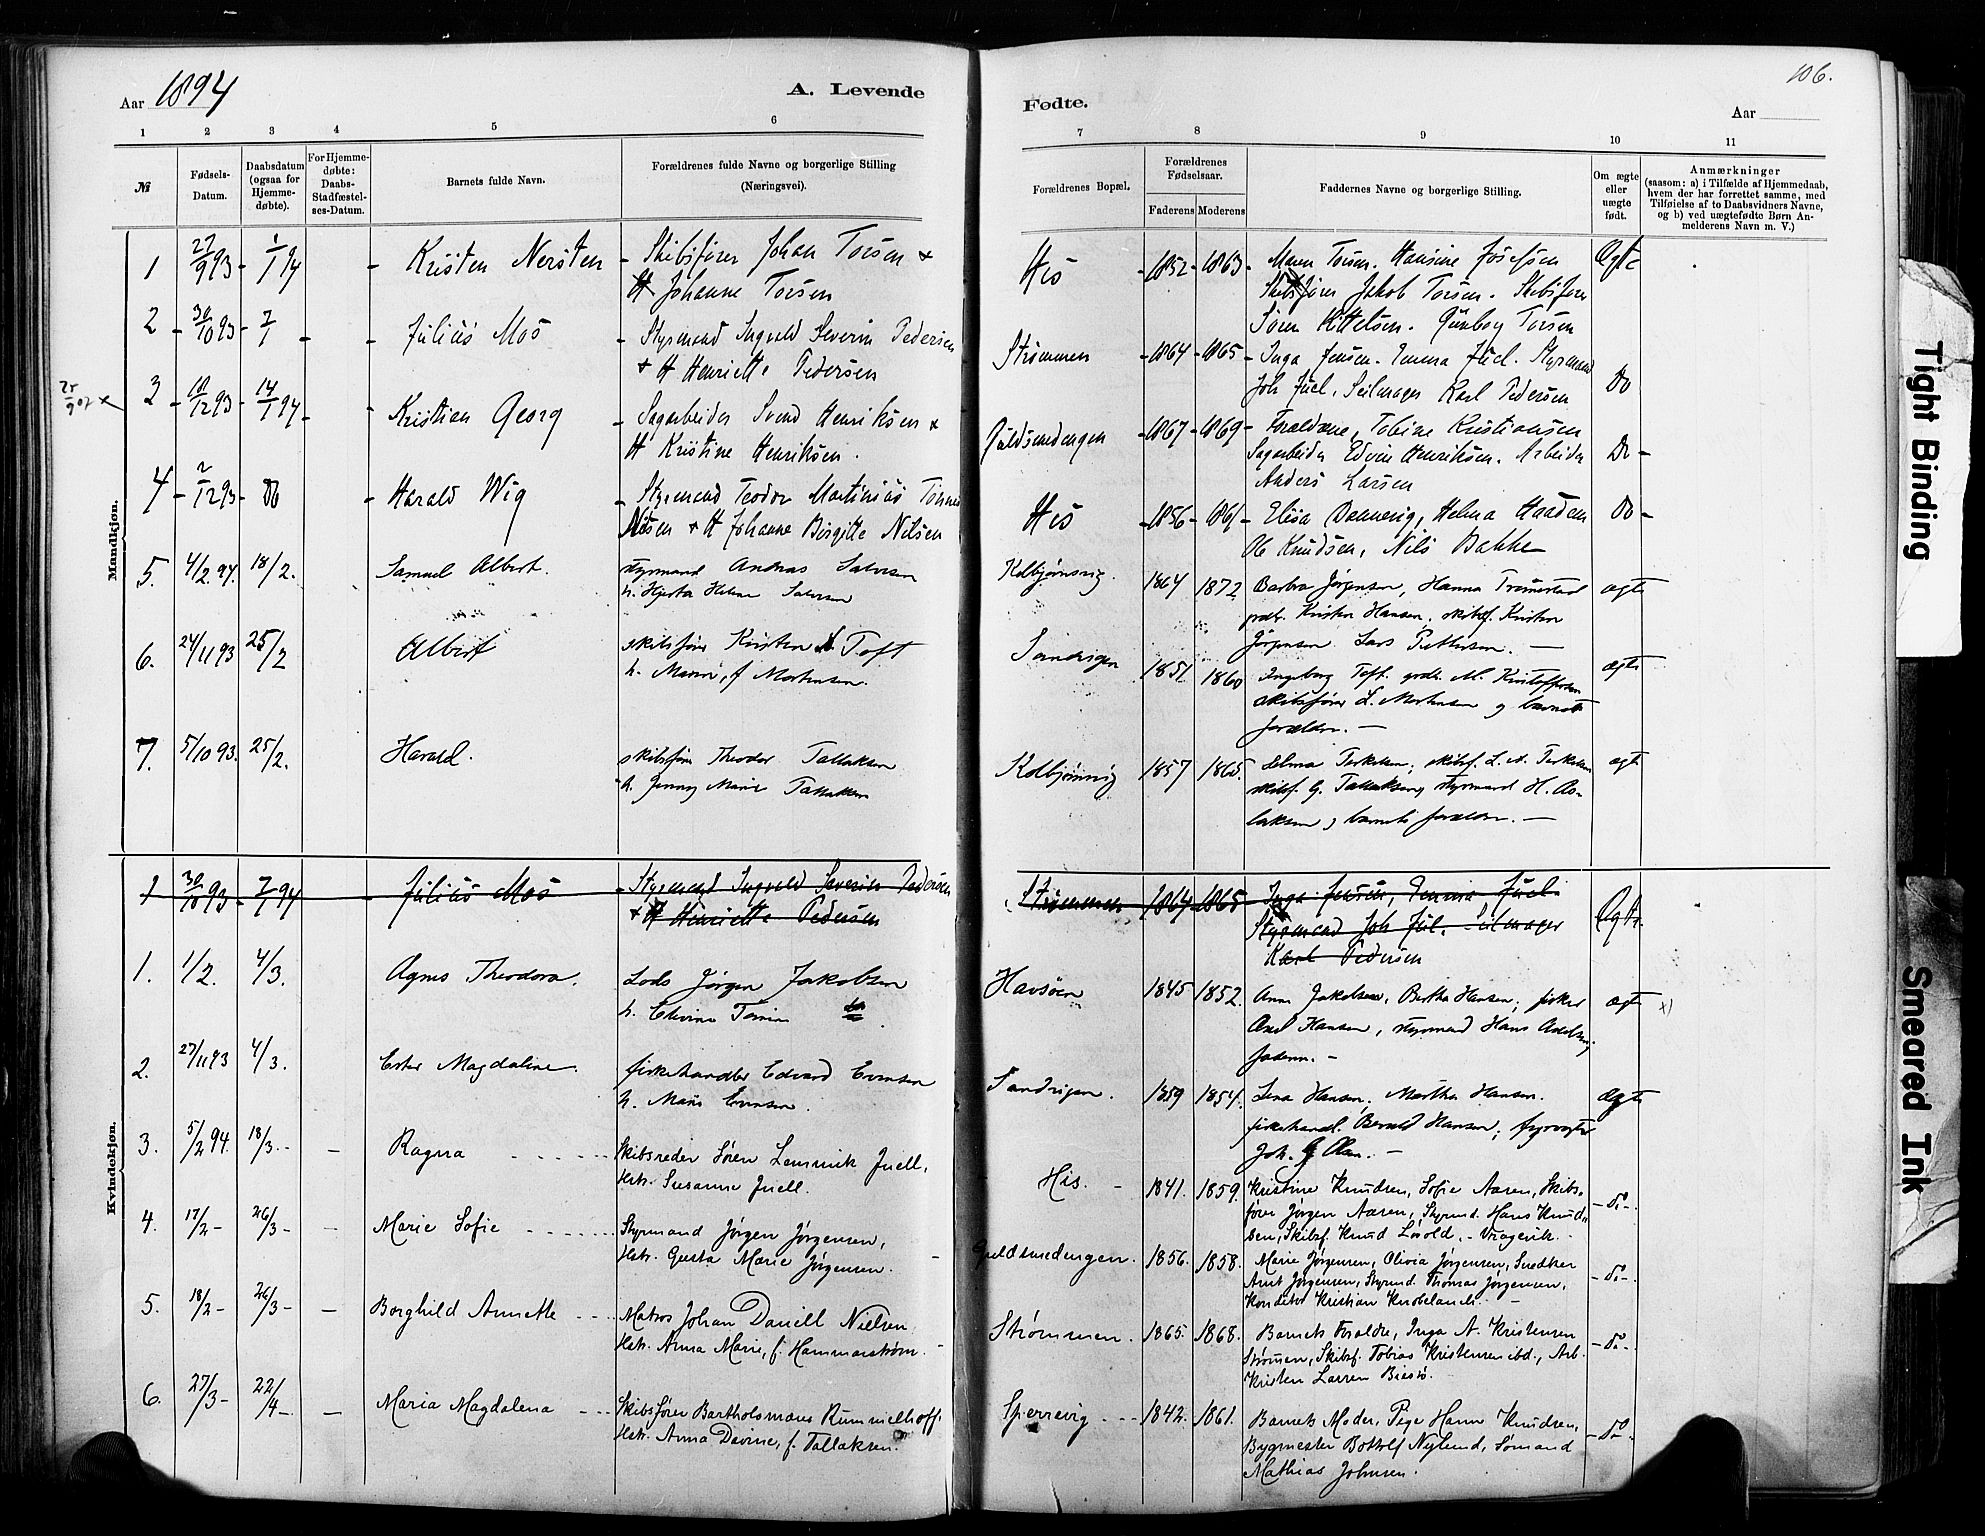 Aar 1894
A. Levende
Fødte.
106.
Aar
1 2 3 4 5 6 7 8 9 10 11
№
Fødsels-Datum.
Daabsdatum (ogsaa for Hjemme-døbte).
For Hjemme-døbte: Daabs-Stadfæstel-ses-Datum.
Barnets fulde Navn.
Forældrenes fulde Navne og borgerlige Stilling
(Næringsvei).
Forældrenes Bopæl.
Forældrenes Fødselsaar.
Faderens Moderens
Faddernes Navne og borgerlige Stilling.
Om ægte eller uægte født.
Anmærkninger
(saasom: a) i Tilfælde af Hjemmedaab,
hvem der har forrettet samme, med
Tilføielse af to Daabsvidners Navne,
og b) ved uægtefødte Børn An-
melderens Navn m. V.)
Mandkjøn.
1 27/9 93 - 1/1 94 - Kristen Nersten - Skibsfører Johan Torsen +
H Johanne Torsen
His - 1852 - 1863 - Maren Torsen. Hansine Josefsen Ægte
Skibsfører Jakob Torsen. Skibsfører
Søren Kittelsen. Gunborg Torsen
2 - 30/10 93 - 7/1 - - Julius Mos - Styrmand Ingvald Severin Pedersen
+ H Henriette Pedersen
Strømmen - 1864 - 1865 - Inga Jensen. Emma Juel. Styrmand
Joh Juel, Seilmager Karl Pedersen Do
25/9 07 x
3 - 18/12 93 - 14/1 94 - - Kristian Georg - Sagarbeider Svend Henriksen +
H Kristine Henriksen.
Guldsmedengen - 1867 - 1869 - Forældrene, Tobine Kristiansen
Sagarbeider Edvin Henriksen. Arbeider Do -
Anders Larsen
4 - 2/12 93 - Do - Harald Wig - Styrmand Teodor Martinius Tønnes
Nilsen + H Johanne Birgitte Nilsen
His - 1856 - 1861 - Elisa Dannevig, Helma Haaden Do -
Ole Knudsen, Nils Bakke
5. 4/2 94. 18/2. Samuel Albert. styrmand Andreas Salvesen
h. Helene Salvesen
Kolbjørnsvig. 1864 1872 Barbra Jørgensen, Hanna Tromestad ægte
Kristen Hansen, skibsf. Kristen
Jørgensen Lars Pettersen. —
6. 24/11 93 25/2 Albert skibsfører Kristen Toft
h. Marie, f Mortensen.
Sandvigen 1851 1860 Ingeborg Toft. M. Kristoffersen ægte
skibsfører L. Mortensen og barnets
forældre. —
7. 5/10 93. 25/2. Harald. skibsfører Theodor Tallaksen
h. Jenny Marie Tallaksen
Kolbjørnsvig 1857 1865. Terkelsen, skibsf. L. A. Terkelsen ægte
skibsf. G. Tallaksen, styrmand H. As-
laksen og barnets forældre. —
Kvindekjøn.
1 30/10 93 - 7/1 94 - Julius Mos - Styrmand Ingvald Severin Pedersen
+ H Henriette Pedersen
Strømmen 1864 - 1865 Inga Jensen, Emma Juel. Ægte.
Styrmand Joh Juel. Seilmager
Karl Pedersen
1. 1/2. 4/3. Agnes Theodora. Lods Jørgen Jakobsen
h. Elevine
Havsøen 1845 1852. Anne Jakobsen, Bertha Hansen, fisker ægte x)
Axel Hansen, styrmand Hans Axelsen,
faderen. -
2. 27/11 93 4/3. Ester Magdaline. fiskehandler Edvard Evensen
h. Marie Evensen.
Sandvigen. 1859 1854. Lena Hansen, Martha Hansen. ægte
fiskehandl. Bernard Hansen, fyrvogter
Joh. G. Olsen. —
3. 5/2 94. 18/3 - - Ragna - - - - - Skibsreder Søren Lemmik Juell,
Hstr. Susanne Juell.
His. - 1841. 1859. Kristine Knudsen, Sofie Aasen, Skibs-
fører Jørgen Aasen, Styrmd. Hans Knud- - do -.
sen, Skibsf. Knud Løvold, - Vragevik. -
4. 17/2 - 26/3 - - Marie Sofie - - - - - Styrmand Jørgen Jørgensen,
Hstr. Gusta Marie Jørgensen. -
Guldsmedengen. 1856. 1858. Marie Jørgensen, Olivia Jørgensen, Snedker
Arnt Jørgensen, Styrmd. Thomas Jørgensen, - do -.
Konditor Kristian Knobelauch. -
5. 18/2 - 26/3 - - Borghild Annette - - - Matros Johan Daniell Nielsen,
Hstr. Anna Marie, f. Hammarstrøm. -
Strømmen. 1865. 1868. Barnets Forældre, Inga A. Kristensen
Strømen, Skibsf. Tobias Kristensen ibd., Arb. - do -.
Kristen Larsen Biesø.
6. 27/3 - 22/4 -. - Maria Magdalena - - - Skibsfører Bartholomæus Rummelhoff
Hstr. Anna Davine, f. Tallaksen.
Sperrevig - - 1842. 1861. Barnets Moder, Pige Hanna Knudsen,
Bygmester Bottolf Nylund, Sømand - do -.
Mathias Johnsen.
Tight Binding
Smeared Ink